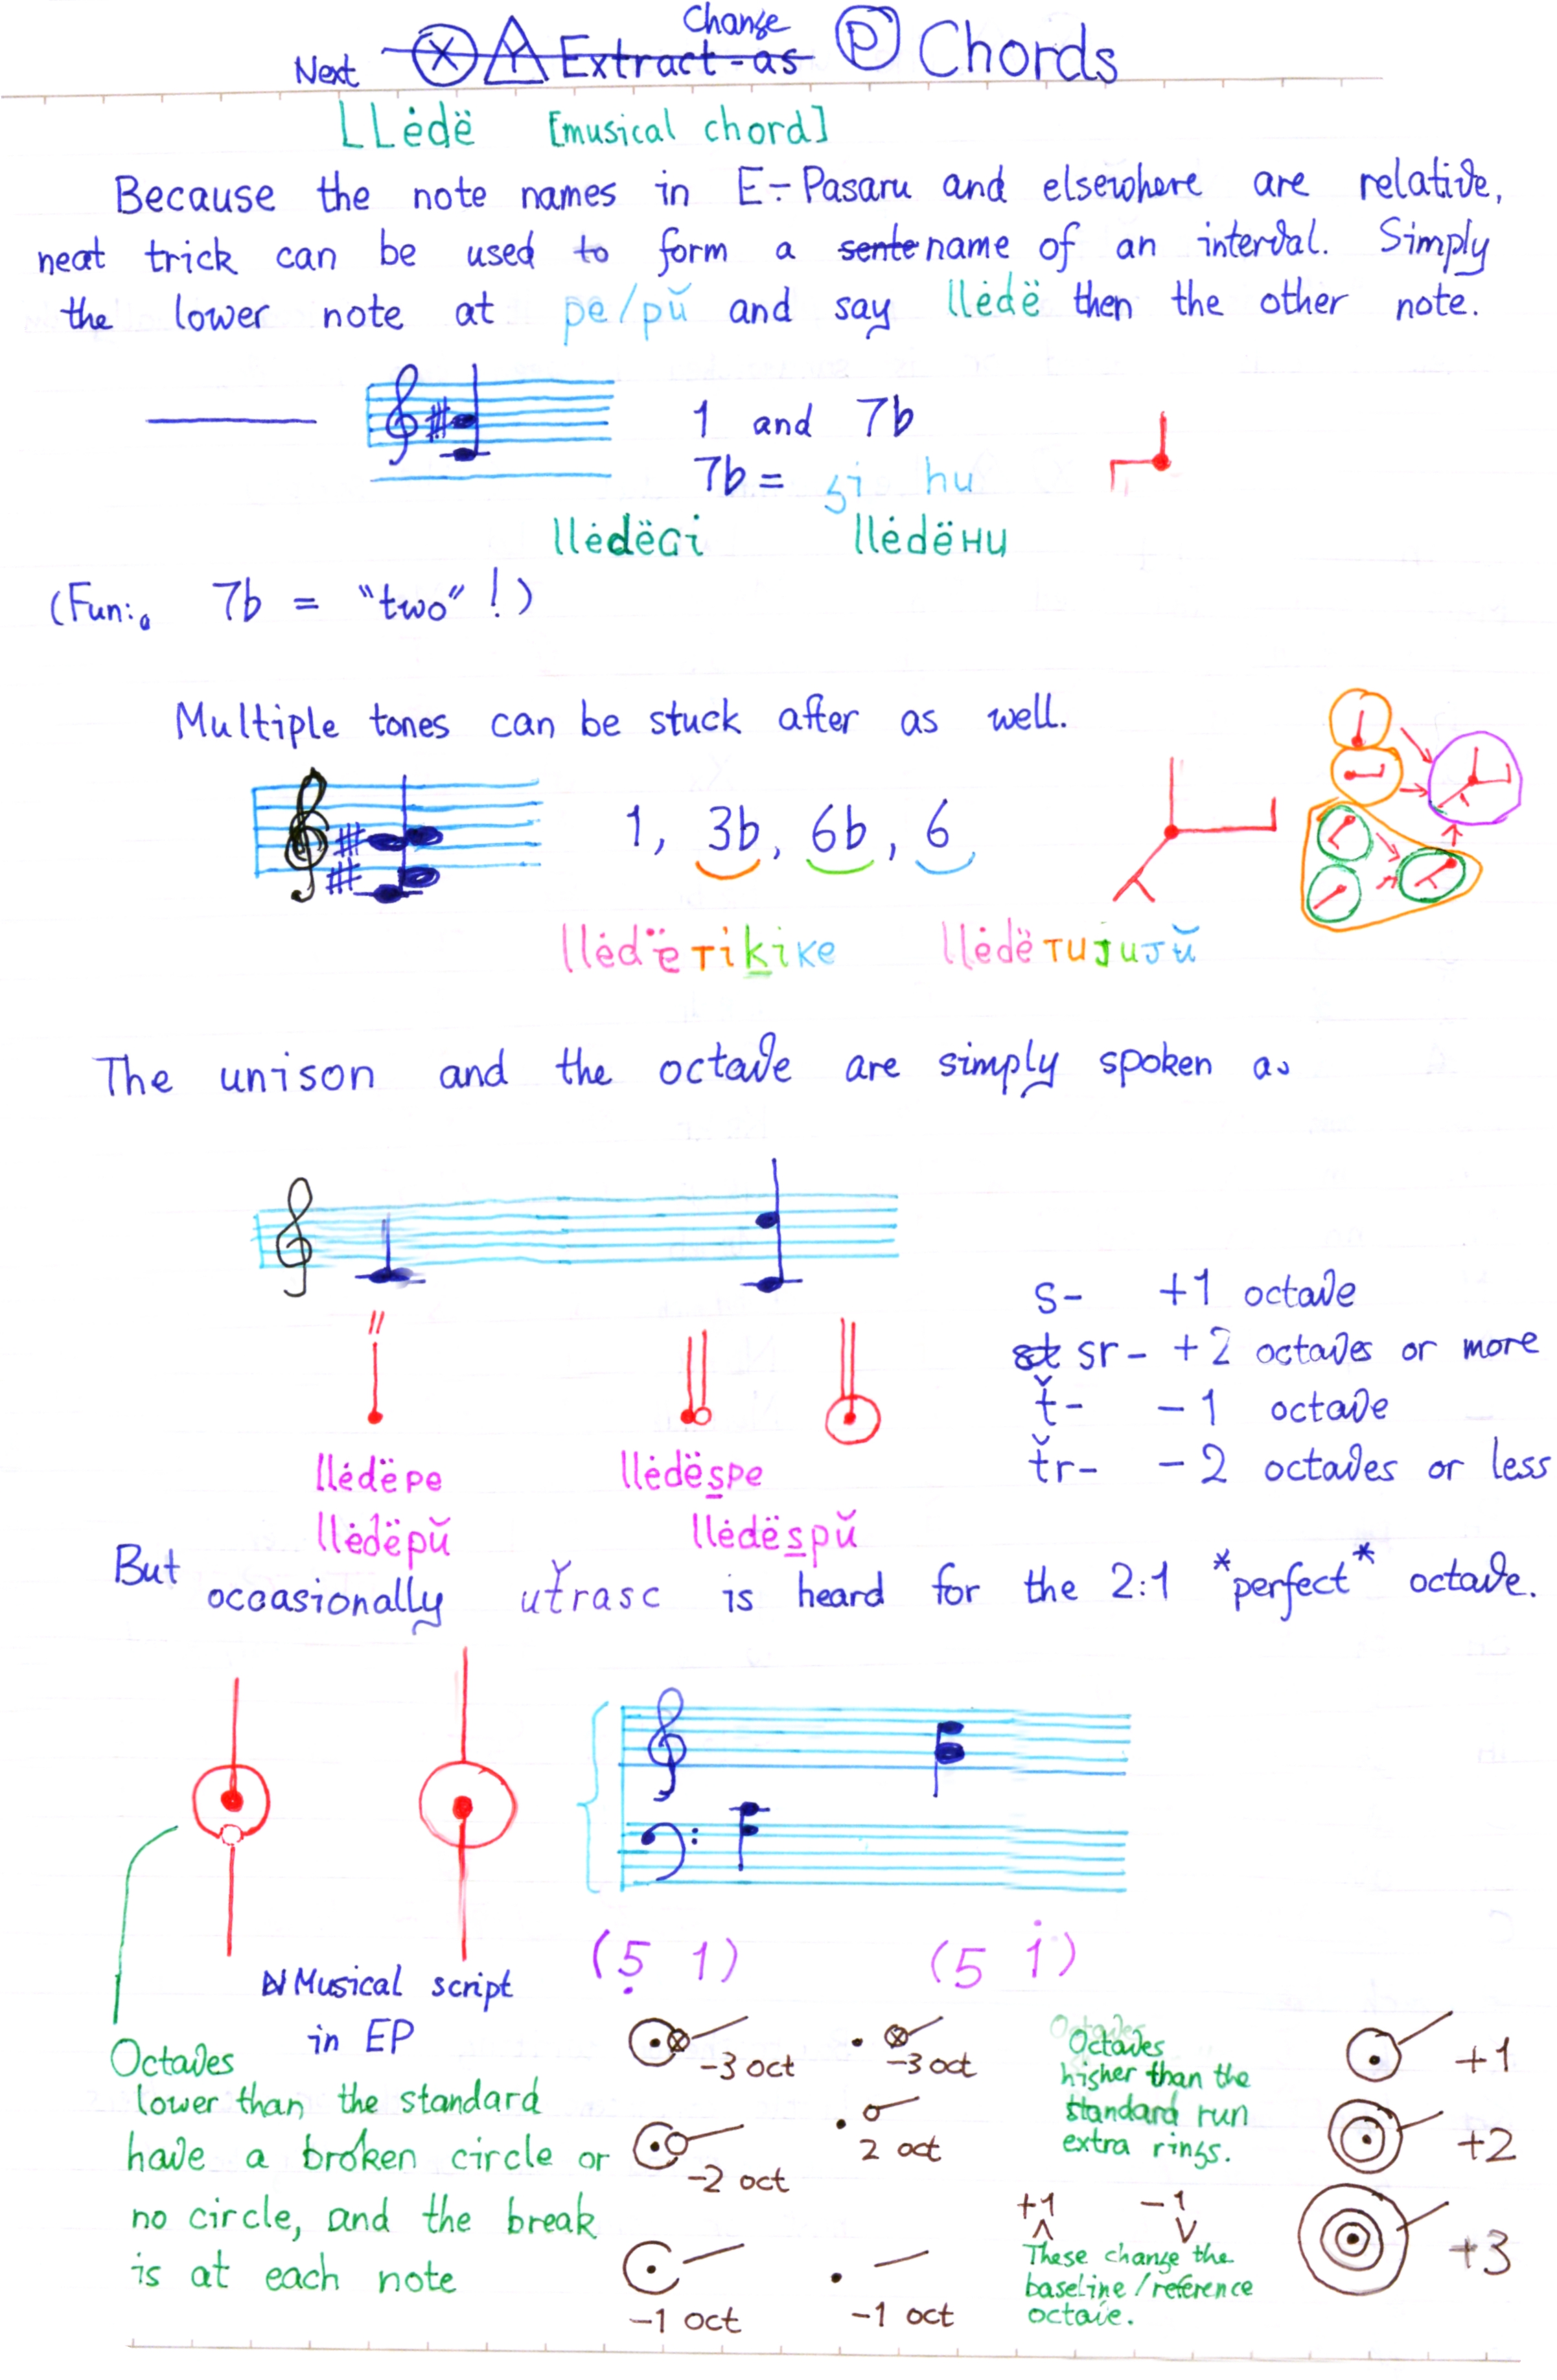 Next Ⓧ Y Extract-as Change Ⓟ Chords
LLėdë [musical chord]
Because the note names in E÷Pasaru and elsewhere are relative,
neat trick can be used to form a sente name of an interval. Simply
the lower note at pe/pŭ and say llėdë then the other note.
1 and 7b
7b = şi hu
llėdëGi llėdëHu
(Fun:. 7b = "two" !)
Multiple tones can be stuck after as well.
1, 3b, 6b, 6
llėdëTikike llėdëTuJuJŭ
The unison and the octave are simply spoken as
s- +1 octave
sr- +2 octaves or more
ť- -1 octave
ťr- -2 octaves or less
llėdëpe llėdëspe
llėdëpŭ llėdëspŭ
But occasionally uťrasc is heard for the 2:1 *perfect* octave.
(5̣ 1) (5 1̇)
Musical script
in EP
Octaves
lower than the standard
have a broken circle or
no circle, and the break
is at each note
-3 oct -3 oct
-2 oct 2 oct
-1 oct -1 oct
Octaves
higher than the
standard run
extra rings.
+1 -1
These change the
baseline/reference
octave.
+1
+2
+3